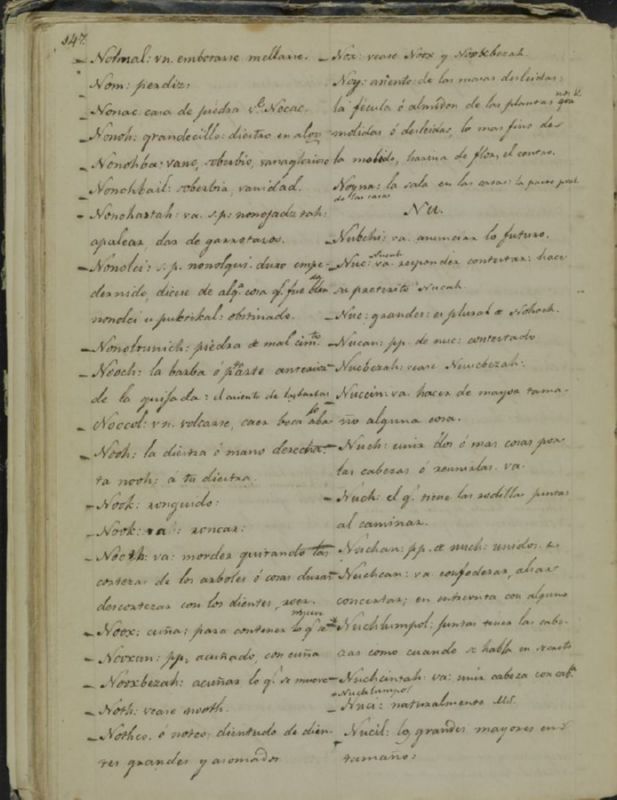 147.
Notmal: vn. embotarse mellarse.
Nom: perdiz:
Nonac casa de piedra Ve. Nocac.
Nonoh: grandecillo: diestro en algo
Nonohba: vano, soberbio, vanaglorioso
Nonohbail: soberbia, vanidad.
Nonohaxtah: va. s.p: nonojadztah:
apalear, dar de garrotazos.
Nonolci: s.p. nonolqui. duro empe-
dernido, dicese de alga. cosa q. fue blda.
nonolci u puksikal: obstinado.
Nonoltunich: piedra de mal cimto.
Nooch: la barba ó parte anterior
de la quijada: el asiento de las barbas
Noccol: vn. volcarse, caer boca abajo
Nooh: la diestra ó mano derecha:
ta nooh: á tu diestra.
Nook: ronquido:
Nook: va: roncar:
Nooth: va: morder quitando las
cortezas de los arboles ó cosas duras
descortezar con los dientes, roer.
Noox: cuña; para contener lo q. se mueve
Nooxan: pp, acuñado, con cuña
Nooxbezah: acuñar lo q. se mueve
Noth: vease nooth.
Nothco. ó notco; dientudo de dien-
tes grandes y asomados
Nox: vease Noox y Nooxbezah
Noy: asiento de las masas desleidas:
la fécula ó almidon de las plantas
molidas ó desleidas, lo mas fino de
lo molido, harina de flor, el centro.
Noyna: la sala en las casas: la parte pral.
de las casas
Nu.
Nubchi: va. anunciar lo futuro.
Nuc: va: responder contestar: hace
su preterito Nucah.
Nuc: grandes: es plural de Nohoch.
Nucan: pp. de nuc: contestado
Nucbezah: vease Nuucbezah:
Nuccin: va. hacer de mayor tama-
ño alguna cosa.
Nuch: unir dos ó mas cosas por
las cabezas ó reunirlas. va.
Nuch: el q. tiene las rodillas juntas
al caminar.
Nuchan: pp. de nuch: unidos. &
Nuchcan: va confederar, aliar
concertar; en entrevista con alguno
Nuchlumpol: juntas tener las cabe-
zas como cuando se habla en secreto
Nuchcintah: va: unir cabeza con caba.
Nuchlumpol
Nuci: naturalmente Ms.
Nucil: los grandes mayores en
tamaño: